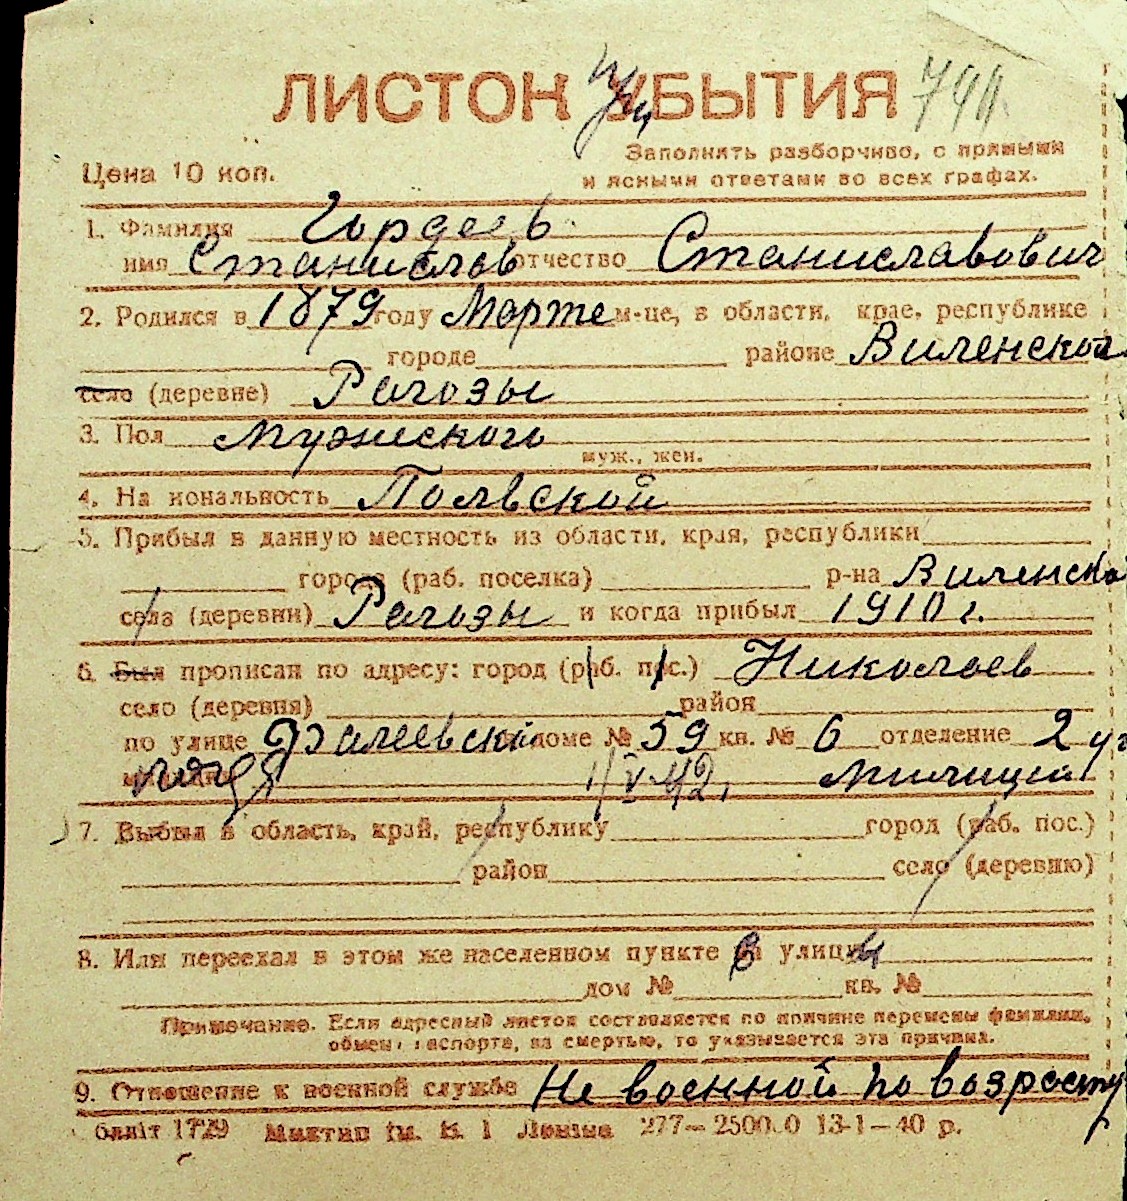 ЛИСТОК УБЫТИЯ
Цена 10 коп.
Заполнять разборчиво, с прямыми
и ясными ответами во всех графах.
1. Фамилия Гордеев
имя Станислов отчество Станиславович
2. Родился в 1879 году Марте м-це, в области, крае, республике
городе районе Виленской
село (деревне) Рагозы
3. Пол Мужиского
муж., жен.
4. На иональность Польской
5. Прибыл в данную местность из области, края, республики
города (раб. поселка) р-на Виленско
села (деревни) Рагозы и когда прибыл 1910 г.
6. Был прописан по адресу: город (раб. пос.) Николаев
село (деревня) район
по улице Фалеевской доме № 59 кв. № 6 отделение 2
1/V-42, милиции
7. Выбыл в область, край, республику город (раб. пос.)
район село (деревню)
8. Или переехал в этом же населенном пункте улицу
дом № кв. №
Примечание. Если адресный листок составляется по причине перемены фамилии,
обмена паспорта, за смертью, то указывается эта причина.
9. Отношение к военной службе Не военной по возросту
1729 277—2500.0 13-1—40 р.